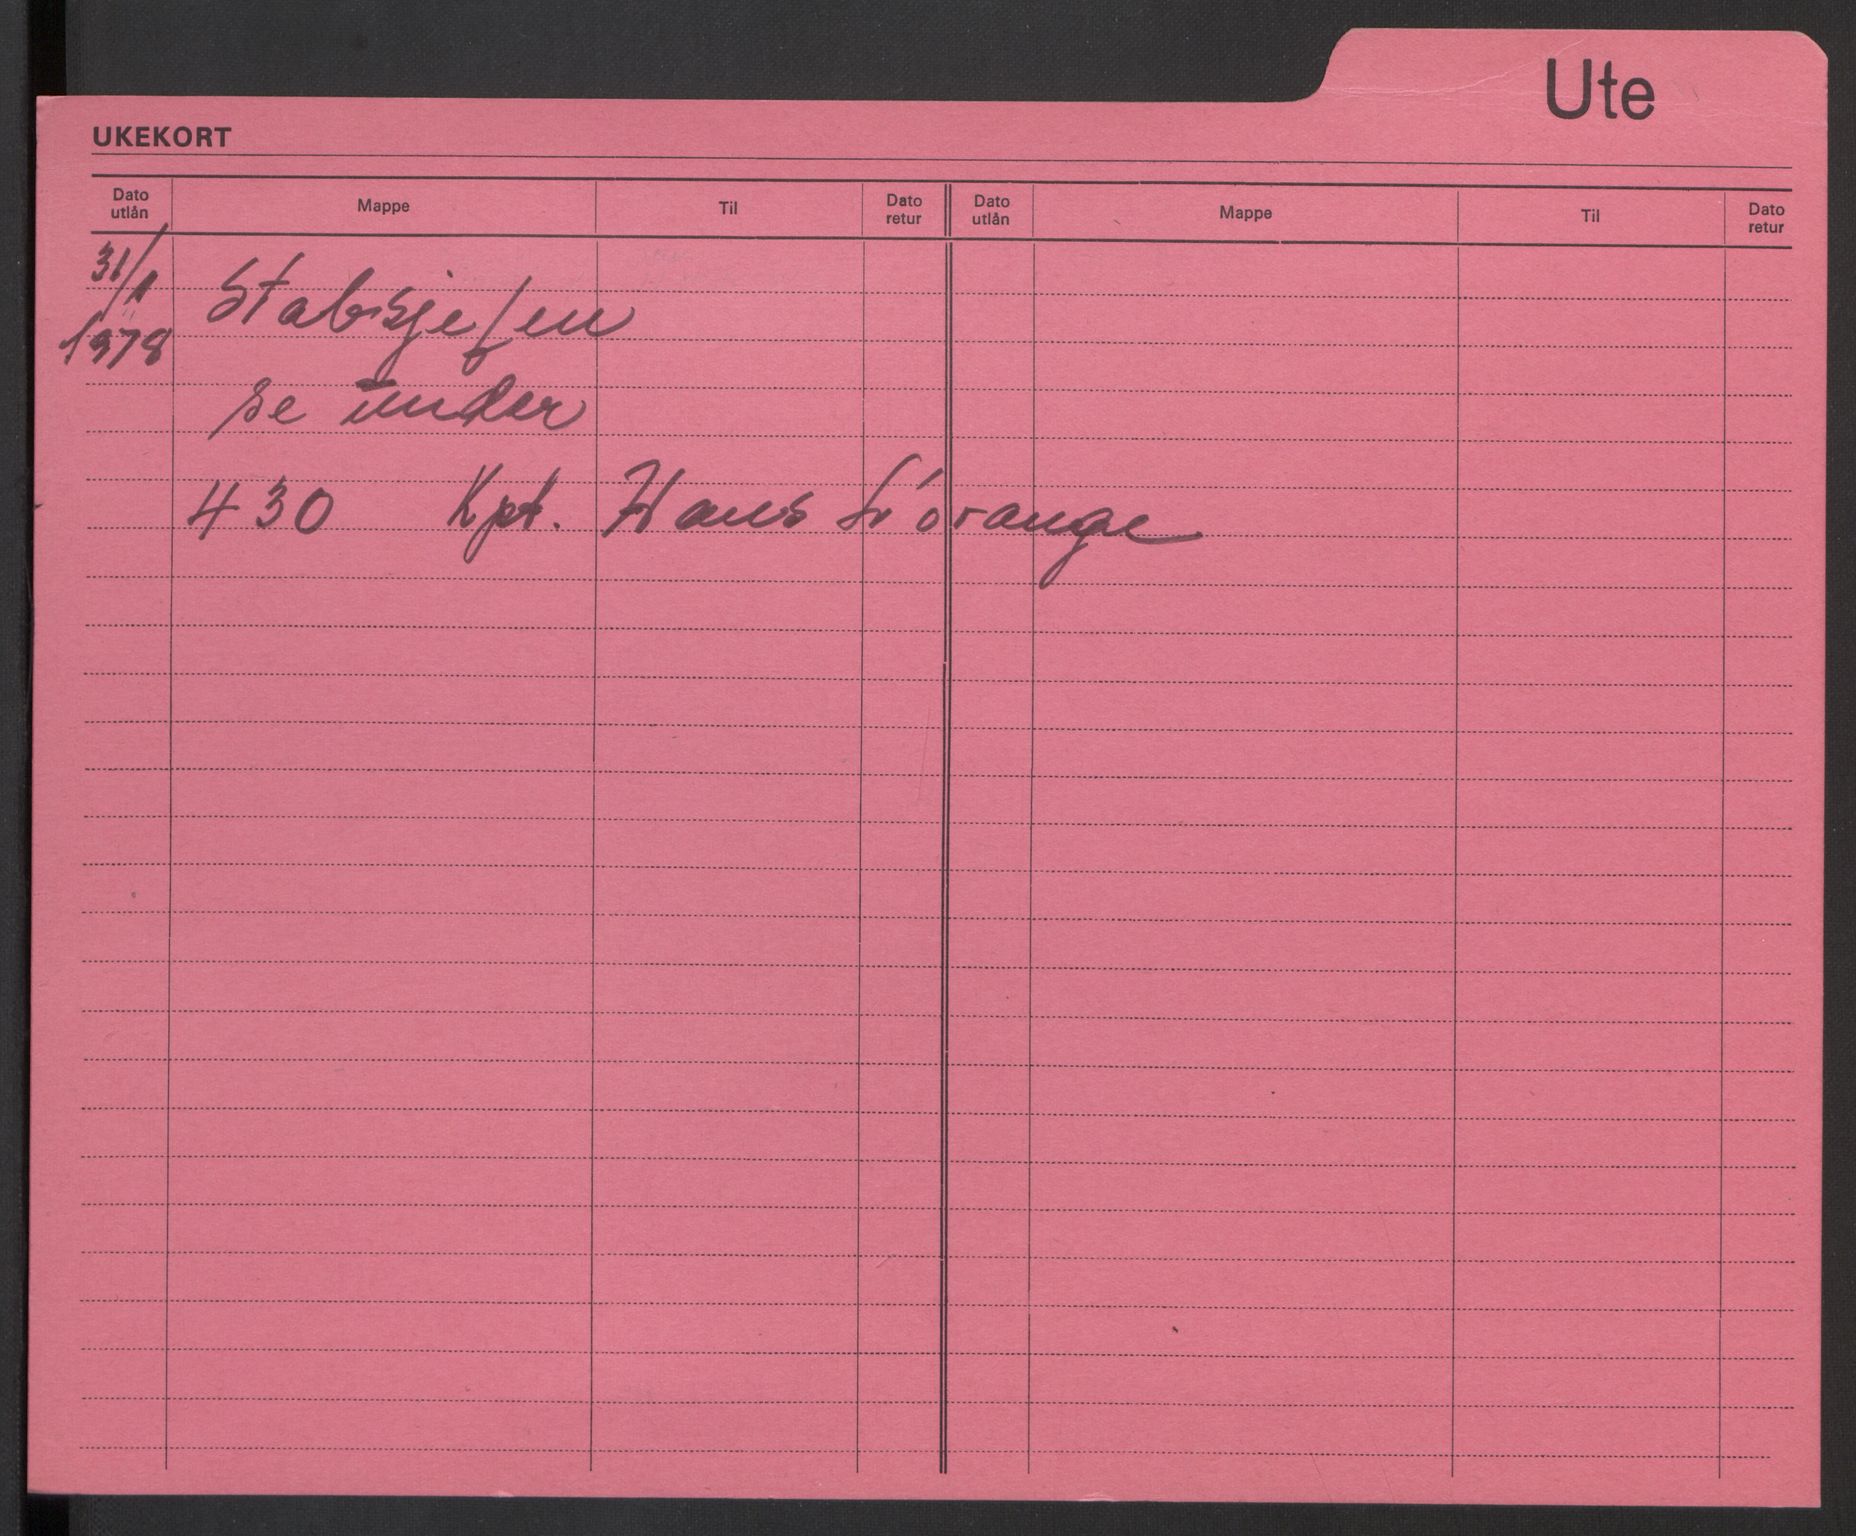 Ute
UKEKORT
Dato utlån Mappe Til Dato retur Dato utlån Mappe Til Dato retur
31/1 Stabsjefen
1978
se under
430 Kpt. Hans L'orange